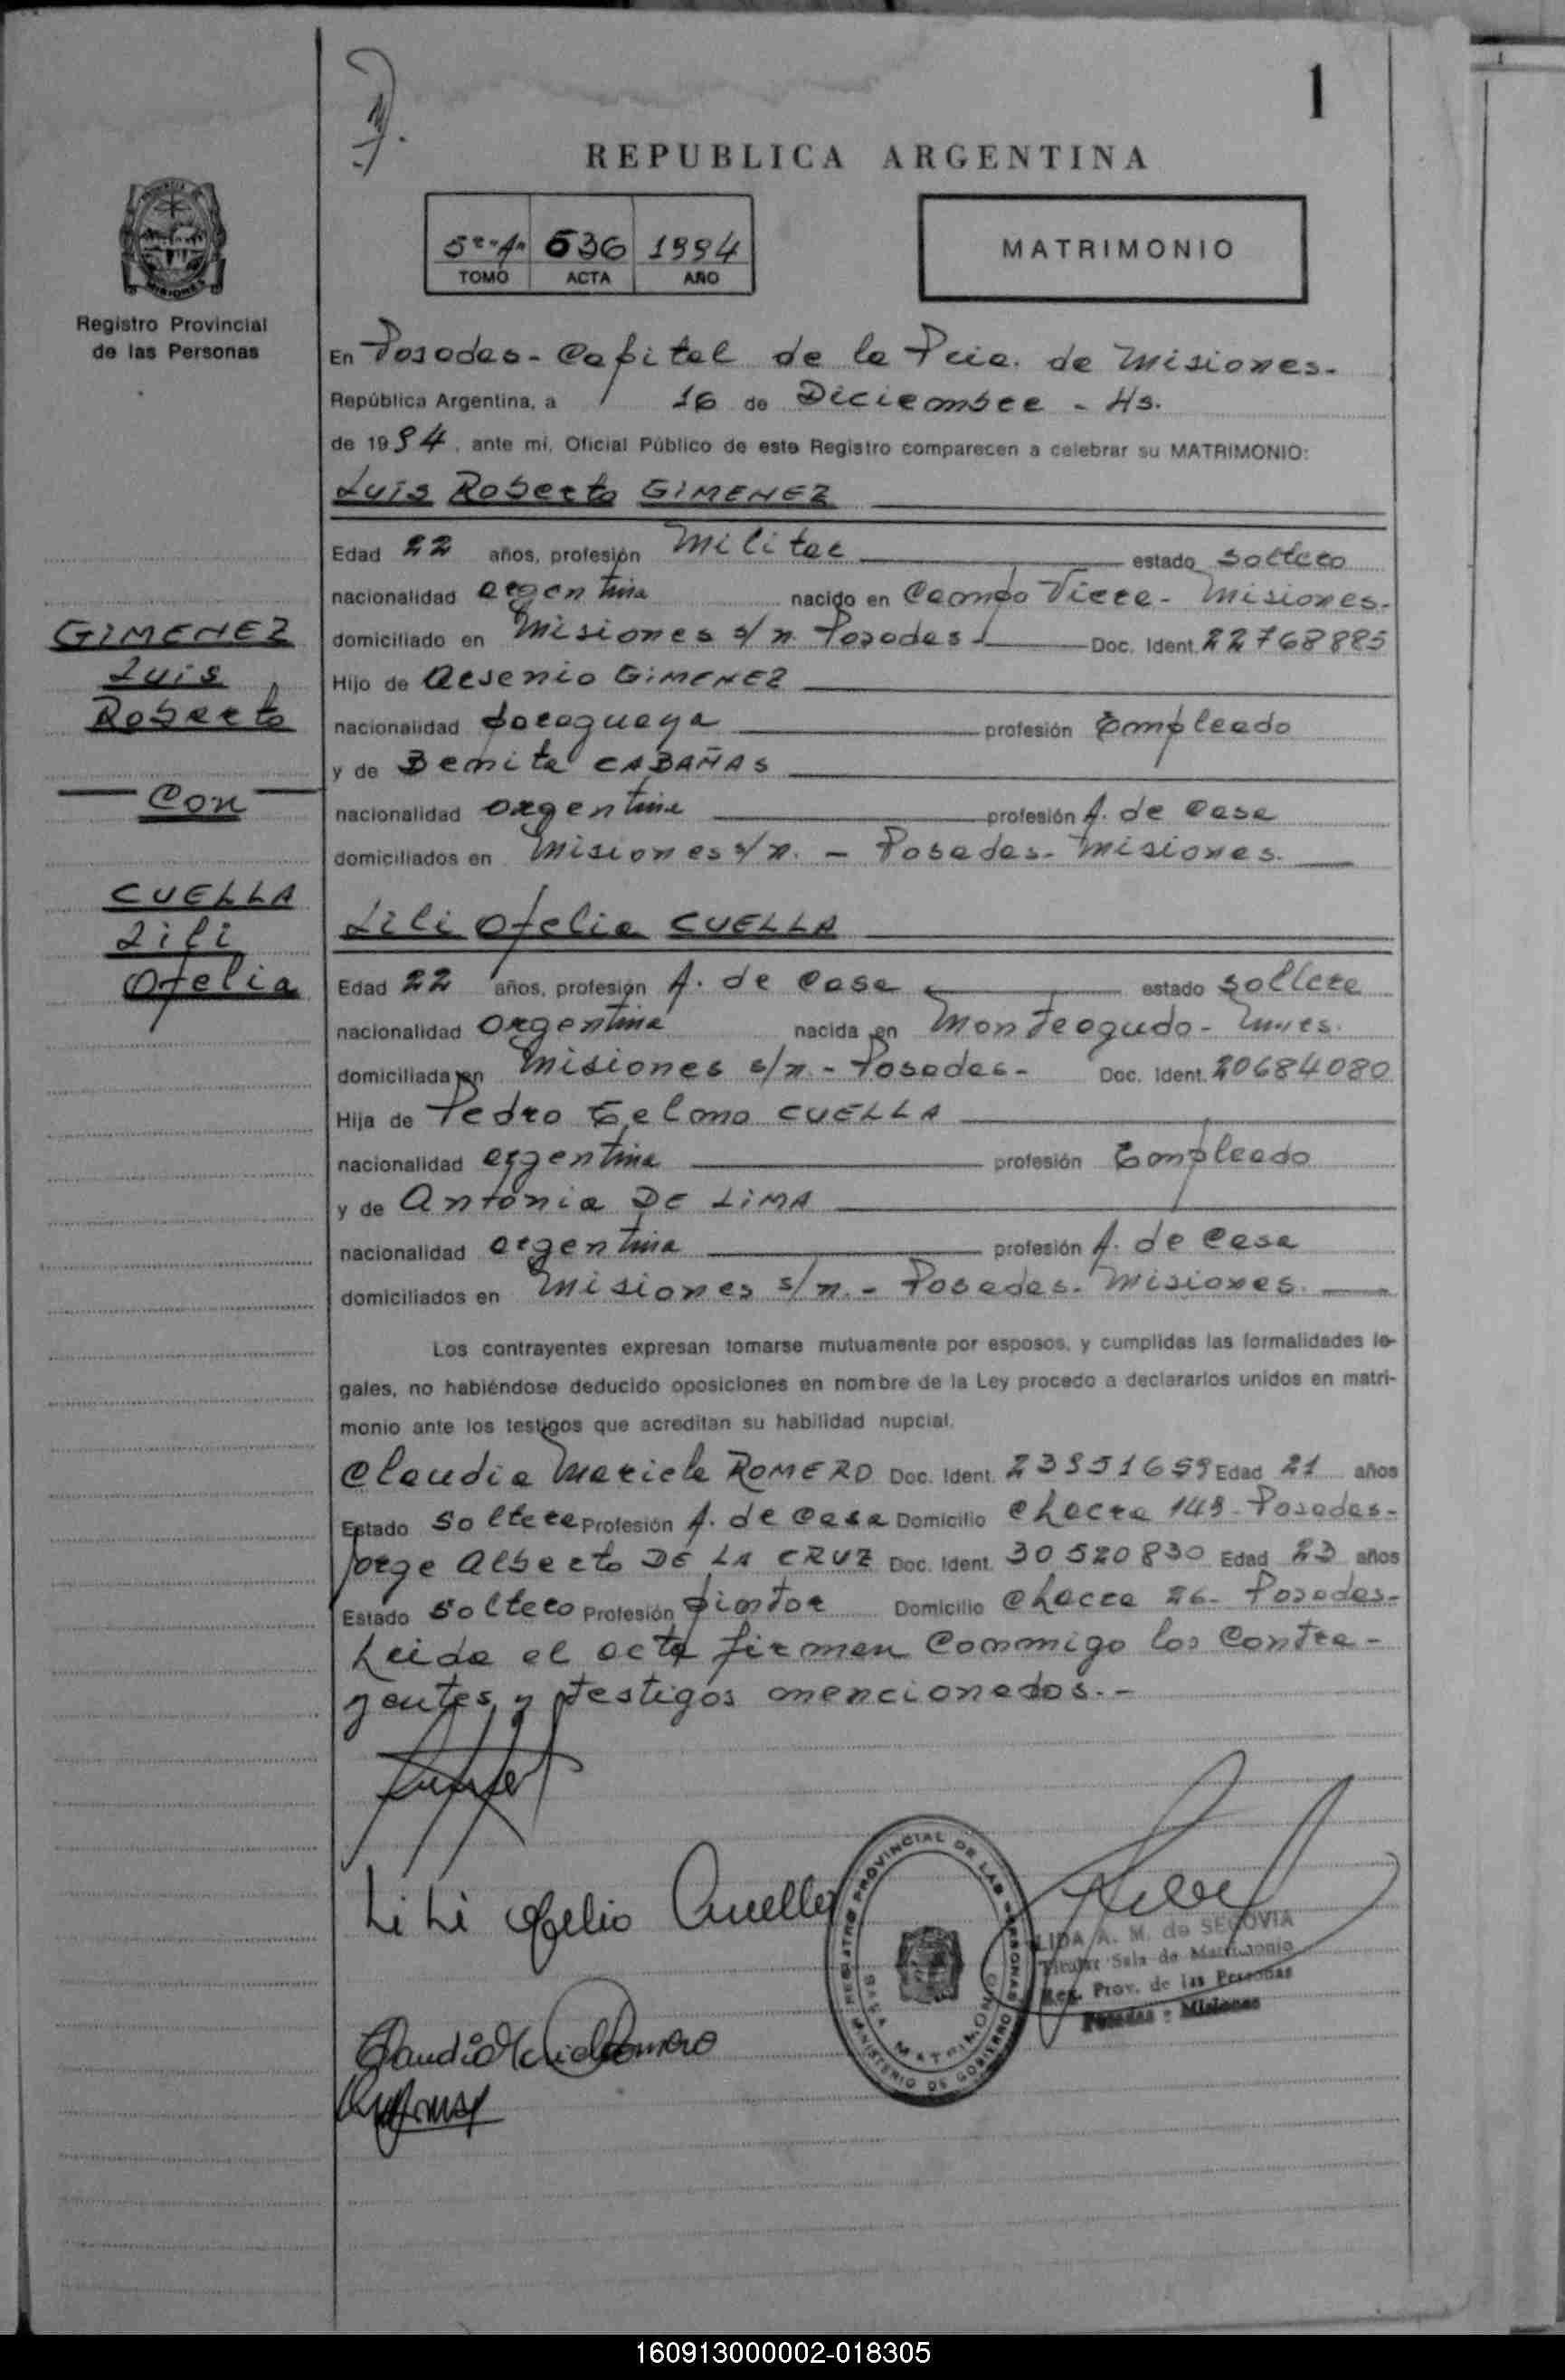 1
REPUBLICA ARGENTINA
536 1994
TOMO ACTA AÑO
MATRIMONIO
Registro Provincial
de las Personas
GIMENEZ
Luis
Roberto
Con
CUELLA
Lili
Ofelia
En Posadas - Capital de la Pcia. de Misiones.
República Argentina, a 16 de Diciembre - Hs.
de 1994, ante mi, Oficial Público de este Registro comparecen a celebrar su MATRIMONIO:
Luis Roberto GIMENEZ
Edad 22 años, profesión Militar estado soltero
nacionalidad argentina nacido en Campo Viera - Misiones.
domiciliado en Misiones s/n. Posadas Doc. Ident. 22768885
Hijo de Arsenio GIMENEZ
nacionalidad paraguaya profesión Empleado
y de Benita CABAÑAS
nacionalidad argentina profesión A. de Casa
domiciliados en Misiones s/n. - Posadas - Misiones.
Lili Ofelia CUELLA
Edad 22 años, profesión A. de Casa estado soltera
nacionalidad argentina nacida en Monteagudo -
domiciliada en Misiones s/n - Posadas - Doc. Ident. 20684080
Hija de Pedro Telmo CUELLA
nacionalidad argentina profesión Empleado
y de Antonia DE LIMA
nacionalidad argentina profesión A. de Casa
domiciliados en Misiones s/n. - Posadas - Misiones.
Los contrayentes expresan tomarse mutuamente por esposos, y cumplidas las formalidades le-
gales, no habiéndose deducido oposiciones en nombre de la Ley procedo a declararlos unidos en matri-
monio ante los testigos que acreditan su habilidad nupcial.
Claudia Mariela ROMERO Doc. Ident. 23951659 Edad 21 años
Estado soltera Profesión A. de Casa Domicilio Chacra 149 - Posadas -
Jorge Alberto DE LA CRUZ Doc. Ident. 30520830 Edad 23 años
Estado soltero Profesión pintor Domicilio Chacra 26 - Posadas -
Leida el acta firman conmigo los contra-
yentes y testigos mencionados. -
Lili Ofelia Cuella
REGISTRO PROVINCIAL DE LAS PERSONAS
MINISTERIO DE GOBIERNO
SALA MATRIMONIO
LIDA A. M. de SEGOVIA
Titular Sala de Matrimonio
Reg. Prov. de las Personas
Posadas - Misiones
Claudia Mariela Romero
160913000002-018305